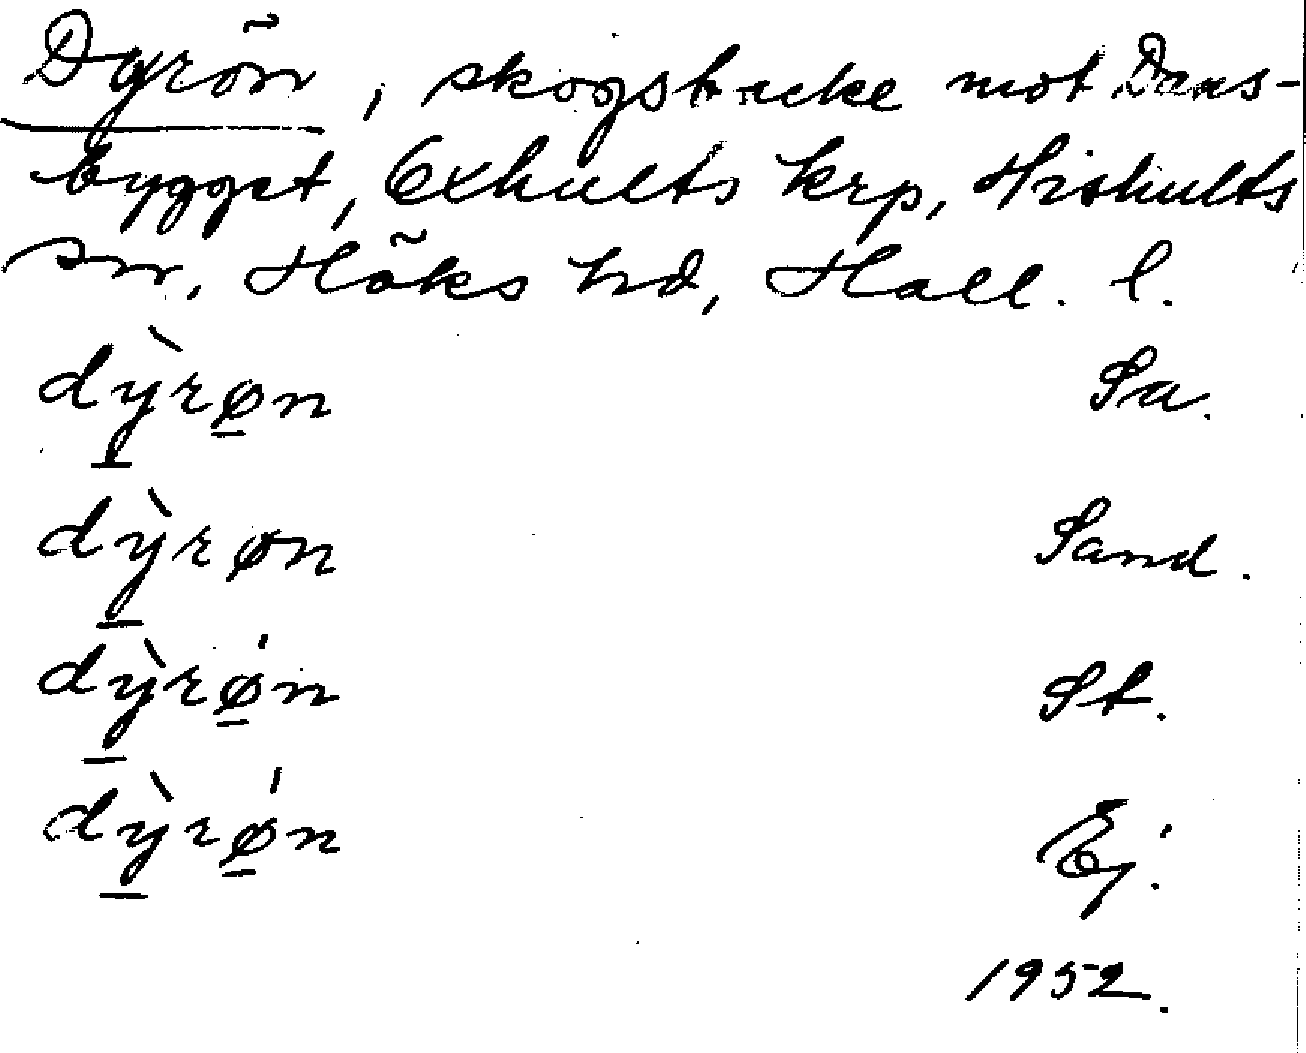 Dyrön, skogsbacke mot Dans-
bygget, Exhults krp, Hishults
sn, Höks hd, Hall. l.
dỳrøn Sa.
dỳrøn Sand.
dỳrǿn St.
dỳrǿn Ej.
1952.